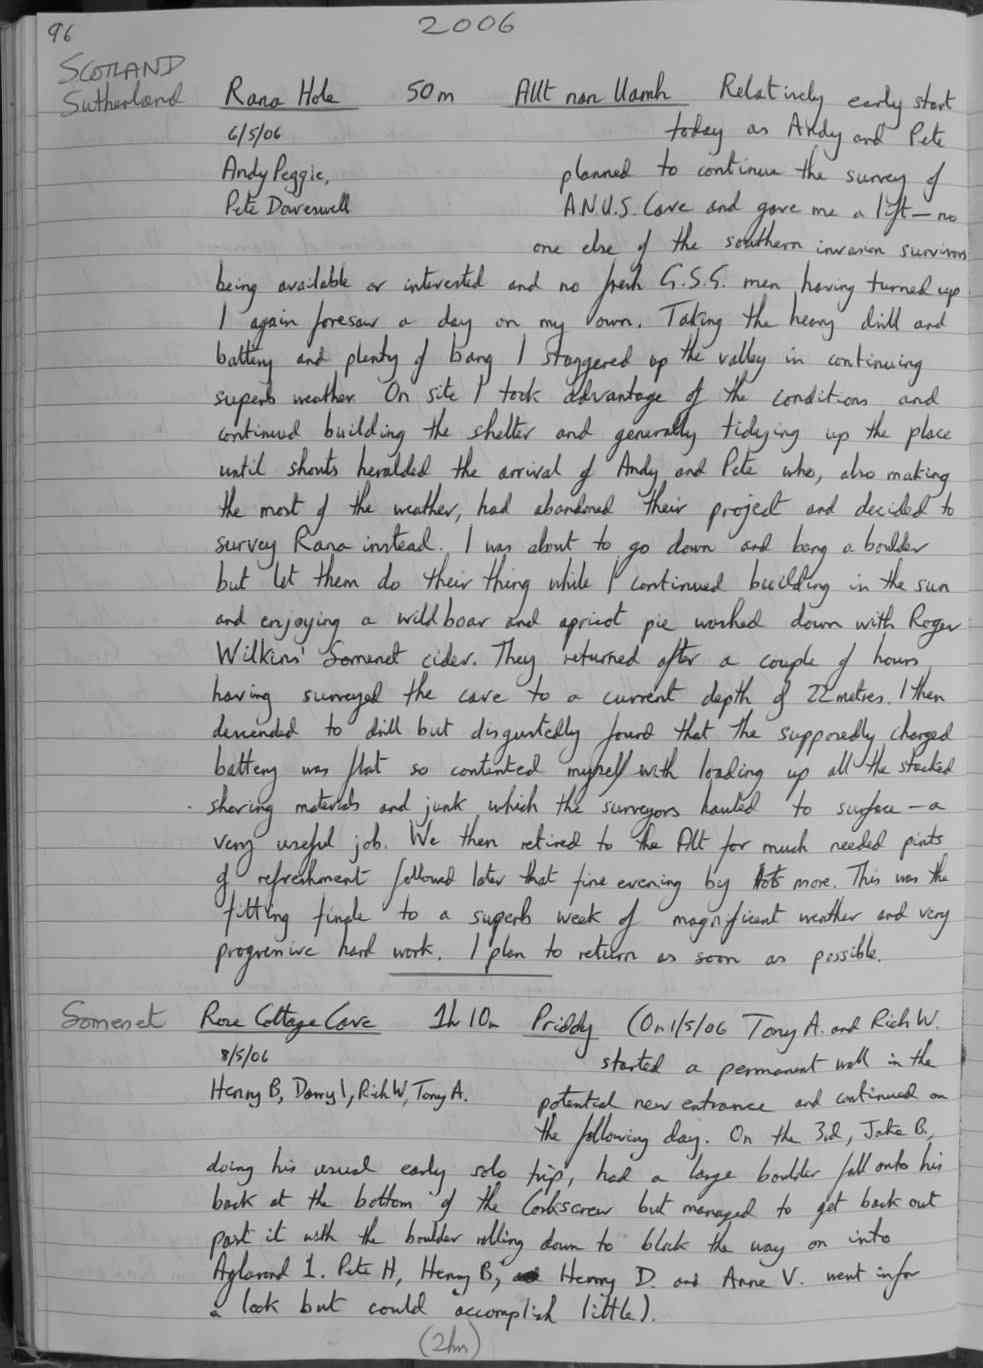 96
2006
SCOTLAND
Sutherland
Rana Hole 50m Allt nan Uamh Relatively early start
6/5/06 today as Andy and Pete
Andy Peggie, planned to continue the survey of
Pete Dowswell A.N.U.S. Cave and gave me a lift – no
one else of the southern invasion survivors
being available or interested and no fresh G.S.G. men having turned up
I again foresaw a day on my own. Taking the heavy drill and
battery and plenty of bang I staggered up the valley in continuing
superb weather. On site I took advantage of the conditions and
continued building the shelter and generally tidying up the place
until shouts heralded the arrival of Andy and Pete who, also making
the most of the weather, had abandoned their project and decided to
survey Rana instead. I was about to go down and bang a boulder
but let them do their thing while I continued building in the sun
and enjoying a wild boar and apricot pie washed down with Roger
Wilkins' Somerset cider. They returned after a couple of hours
having surveyed the cave to a current depth of 22 metres. I then
descended to drill but disgustedly found that the supposedly charged
battery was flat so contented myself with loading up all the stacked
shoring materials and junk which the surveyors hauled to surface – a
very useful job. We then retired to the Alt for much needed pints
of refreshment followed later that fine evening by lots more. This was the
fitting finale to a superb week of magnificent weather and very
progressive hard work. I plan to return as soon as possible.
Somerset Rose Cottage Cave 1h 10m Priddy (On 1/5/06 Tony A. and Rich W.
8/5/06 started a permanent wall in the
Henry B, Darryl, Rich W, Tony A. potential new entrance and continued on
the following day. On the 3rd, Jake B.,
doing his usual early solo trip, had a large boulder fall onto his
back at the bottom of the Corkscrew but managed to get back out
past it with the boulder rolling down to block the way on into
Aglarond 1. Pete H, Henry B, Henry D. and Anne V. went in for
a look but could accomplish little).
(2hrs)